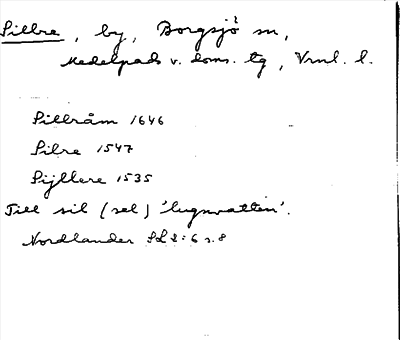 Sillre, by, Borgsjö sn,
Medelpads v. doms. tg, Vrnl. l.
Sillråm 1646
Silre 1547
Sijllere 1535
Till sil (sel) 'lugnvatten'.
Nordlander SL 2:6 s. 8